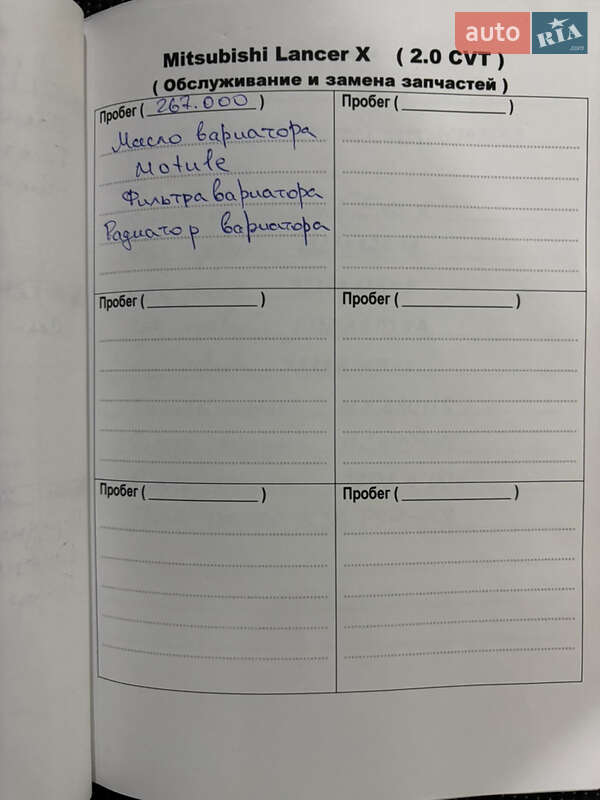 auto RIA .com
Mitsubishi Lancer X ( 2.0 CVT )
( Обслуживание и замена запчастей )
Пробег ( 267.000 )
Масло вариатора
Motule
Фильтра вариатора
Радиатор вариатора
Пробег ( )
Пробег ( )
Пробег ( )
Пробег ( )
Пробег ( )